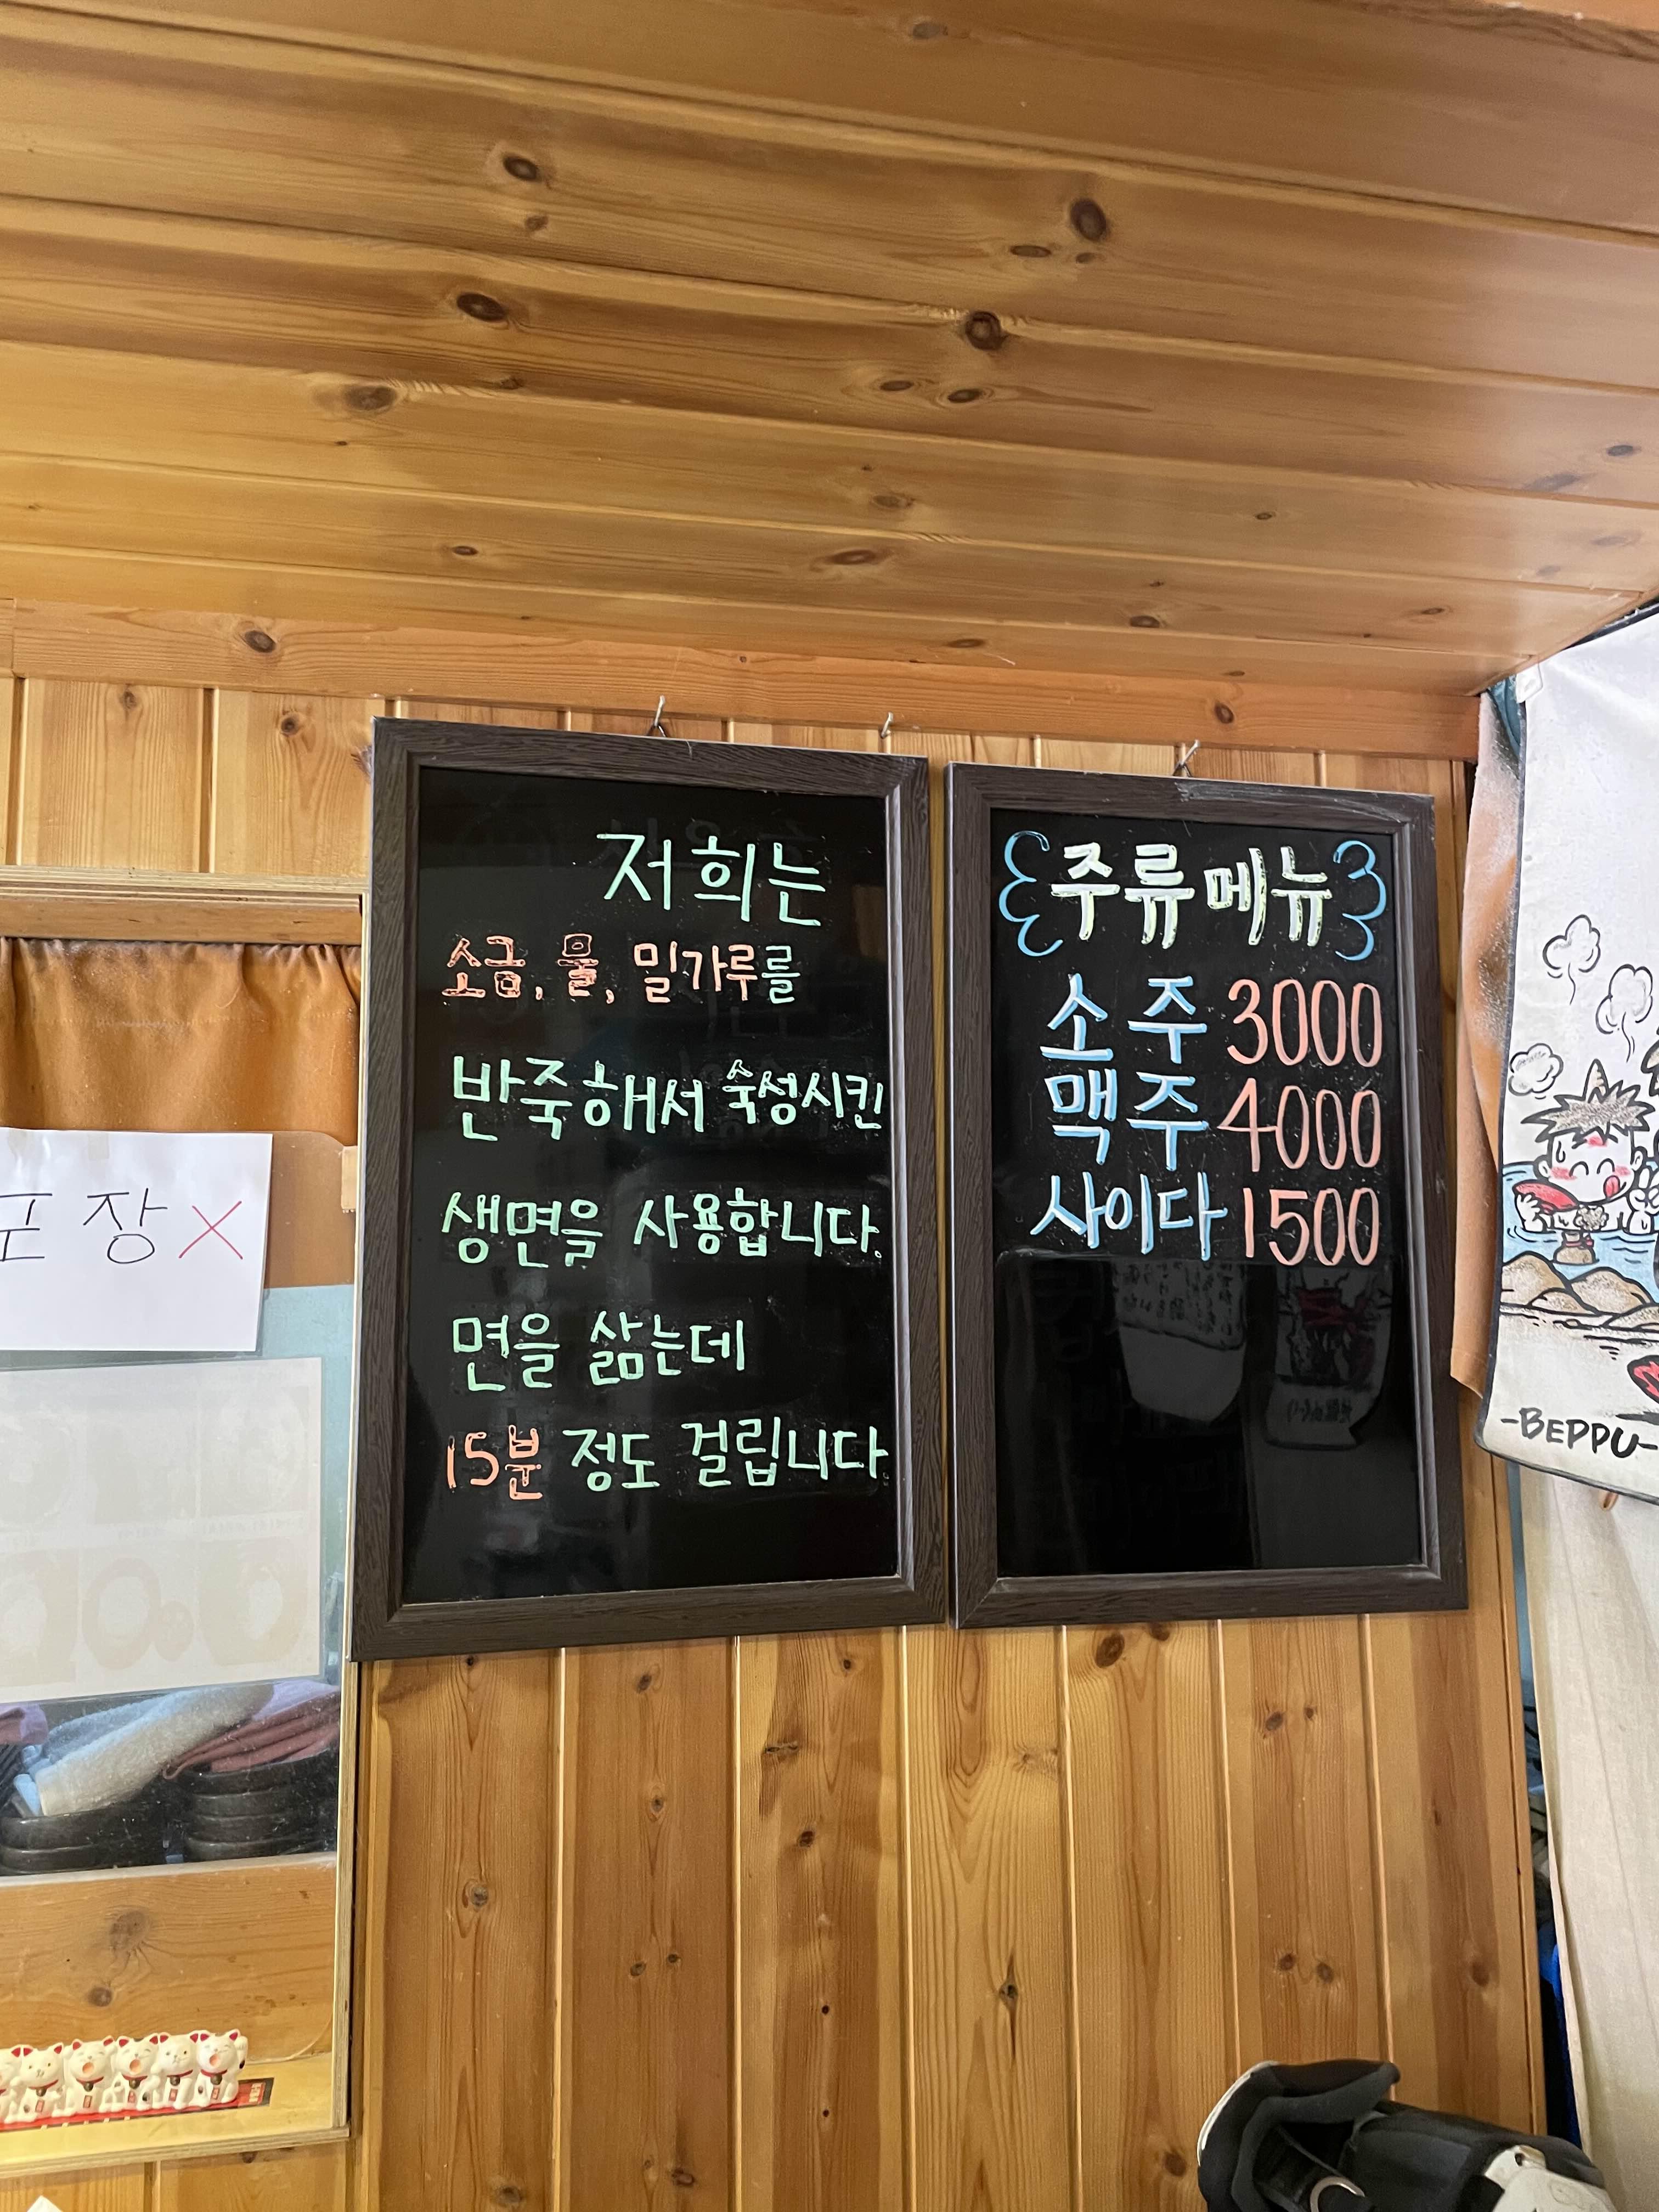 저희는
소금, 물, 밀가루를
반죽해서 숙성시킨
생면을 사용합니다.
면을 삶는데
15분 정도 걸립니다.
주류메뉴
소주 3000
맥주 4000
사이다 1500
포장 X
-BEPPU-